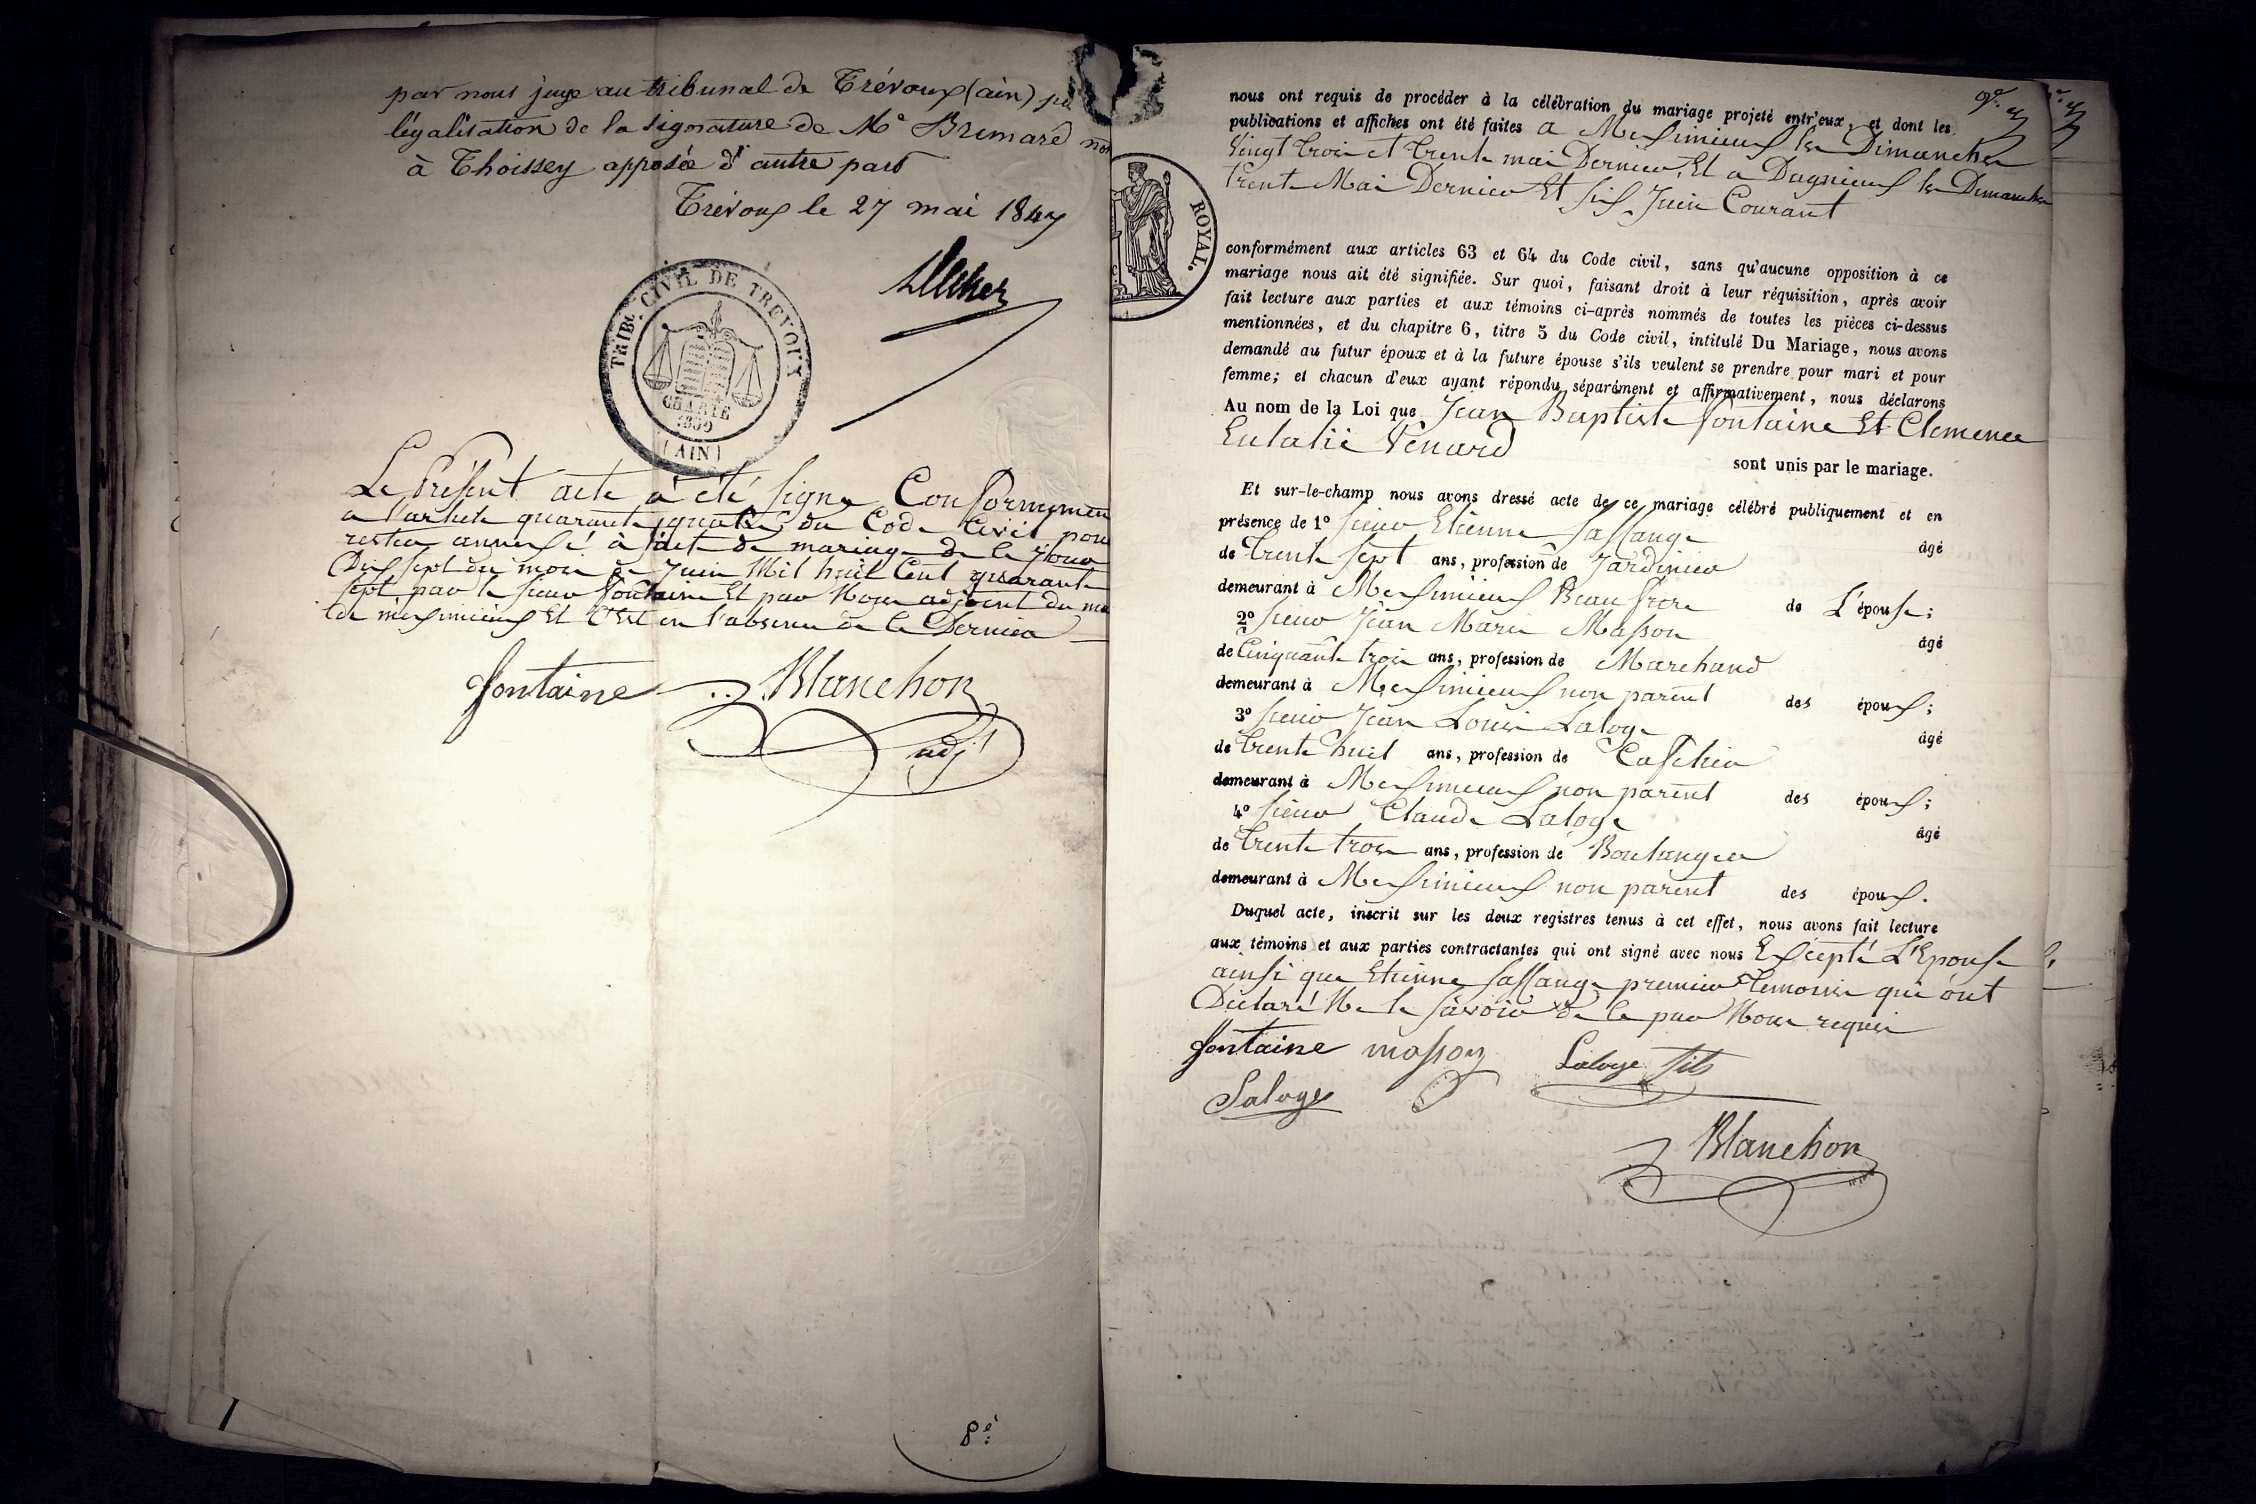 par nous juge au tribunal de Trévoux (ain) pr
légalisation de la signature de Me Brimard no
à Thoissey apposée d'autre part
Trévoux le 27 mai 1847
TRIB. CIVIL DE TREVOUX
CHARTE
1830
(AIN)
Le Présent acte a été signe Conformemen
a l'article quarante quatre du Code Civil pour
rester annexé à l'acte de mariage de ce jour
Dix sept du mois de Juin Mil huit Cent quarante
sept par le sieur Fontaine Et par Nous adjoint du ma
de misimieux Et C'Est en l'absence de ce Dernier
fontaine
Blanchon
adjt
8e
nous ont requis de procéder à la célébration du mariage projeté entr'eux, et dont les
publications et affiches ont été faites a Misimieux les Dimanches
Vingt trois et trente mai Dernier, Et a Dagnieux les Dimanches
trente Mai Dernier Et Six Juin Courant
ROYAL.
conformément aux articles 63 et 64 du Code civil, sans qu'aucune opposition à ce
mariage nous ait été signifiée. Sur quoi, faisant droit à leur réquisition, après avoir
fait lecture aux parties et aux témoins ci-après nommés de toutes les pièces ci-dessus
mentionnées, et du chapitre 6, titre 5 du Code civil, intitulé Du Mariage, nous avons
demandé au futur époux et à la future épouse s'ils veulent se prendre pour mari et pour
femme; et chacun d'eux ayant répondu séparément et affirmativement, nous déclarons
Au nom de la Loi que Jean Baptiste fontaine Et Clemence
Eulalie Venard
sont unis par le mariage.
Et sur-le-champ nous avons dressé acte de ce mariage célébré publiquement et en
présence de 1º sieur Etienne Sassange âgé
de trente sept ans, profession de Jardinier
demeurant à Misimieux Beau frere de L'épouse;
2º sieur Jean Marie Masson âgé
de Cinquante trois ans, profession de Marchand
demeurant à Misimieux non parent des époux;
3º sieur Jean Louis Laloge âgé
de trente huit ans, profession de Caffetier
demeurant à Misimieux non parent des époux;
4º sieur Claude Laloge âgé
de trente trois ans, profession de Boulanger
demeurant à Misimieux non parent des époux.
Duquel acte, inscrit sur les deux registres tenus à cet effet, nous avons fait lecture
aux témoins et aux parties contractantes qui ont signé avec nous Excepté L'Epouse
ainsi que Etienne Sassange premier temoin qui ont
Déclaré Ne le savoir de ce par Nous requis
fontaine masson Laloge fils
Laloge
Blanchon